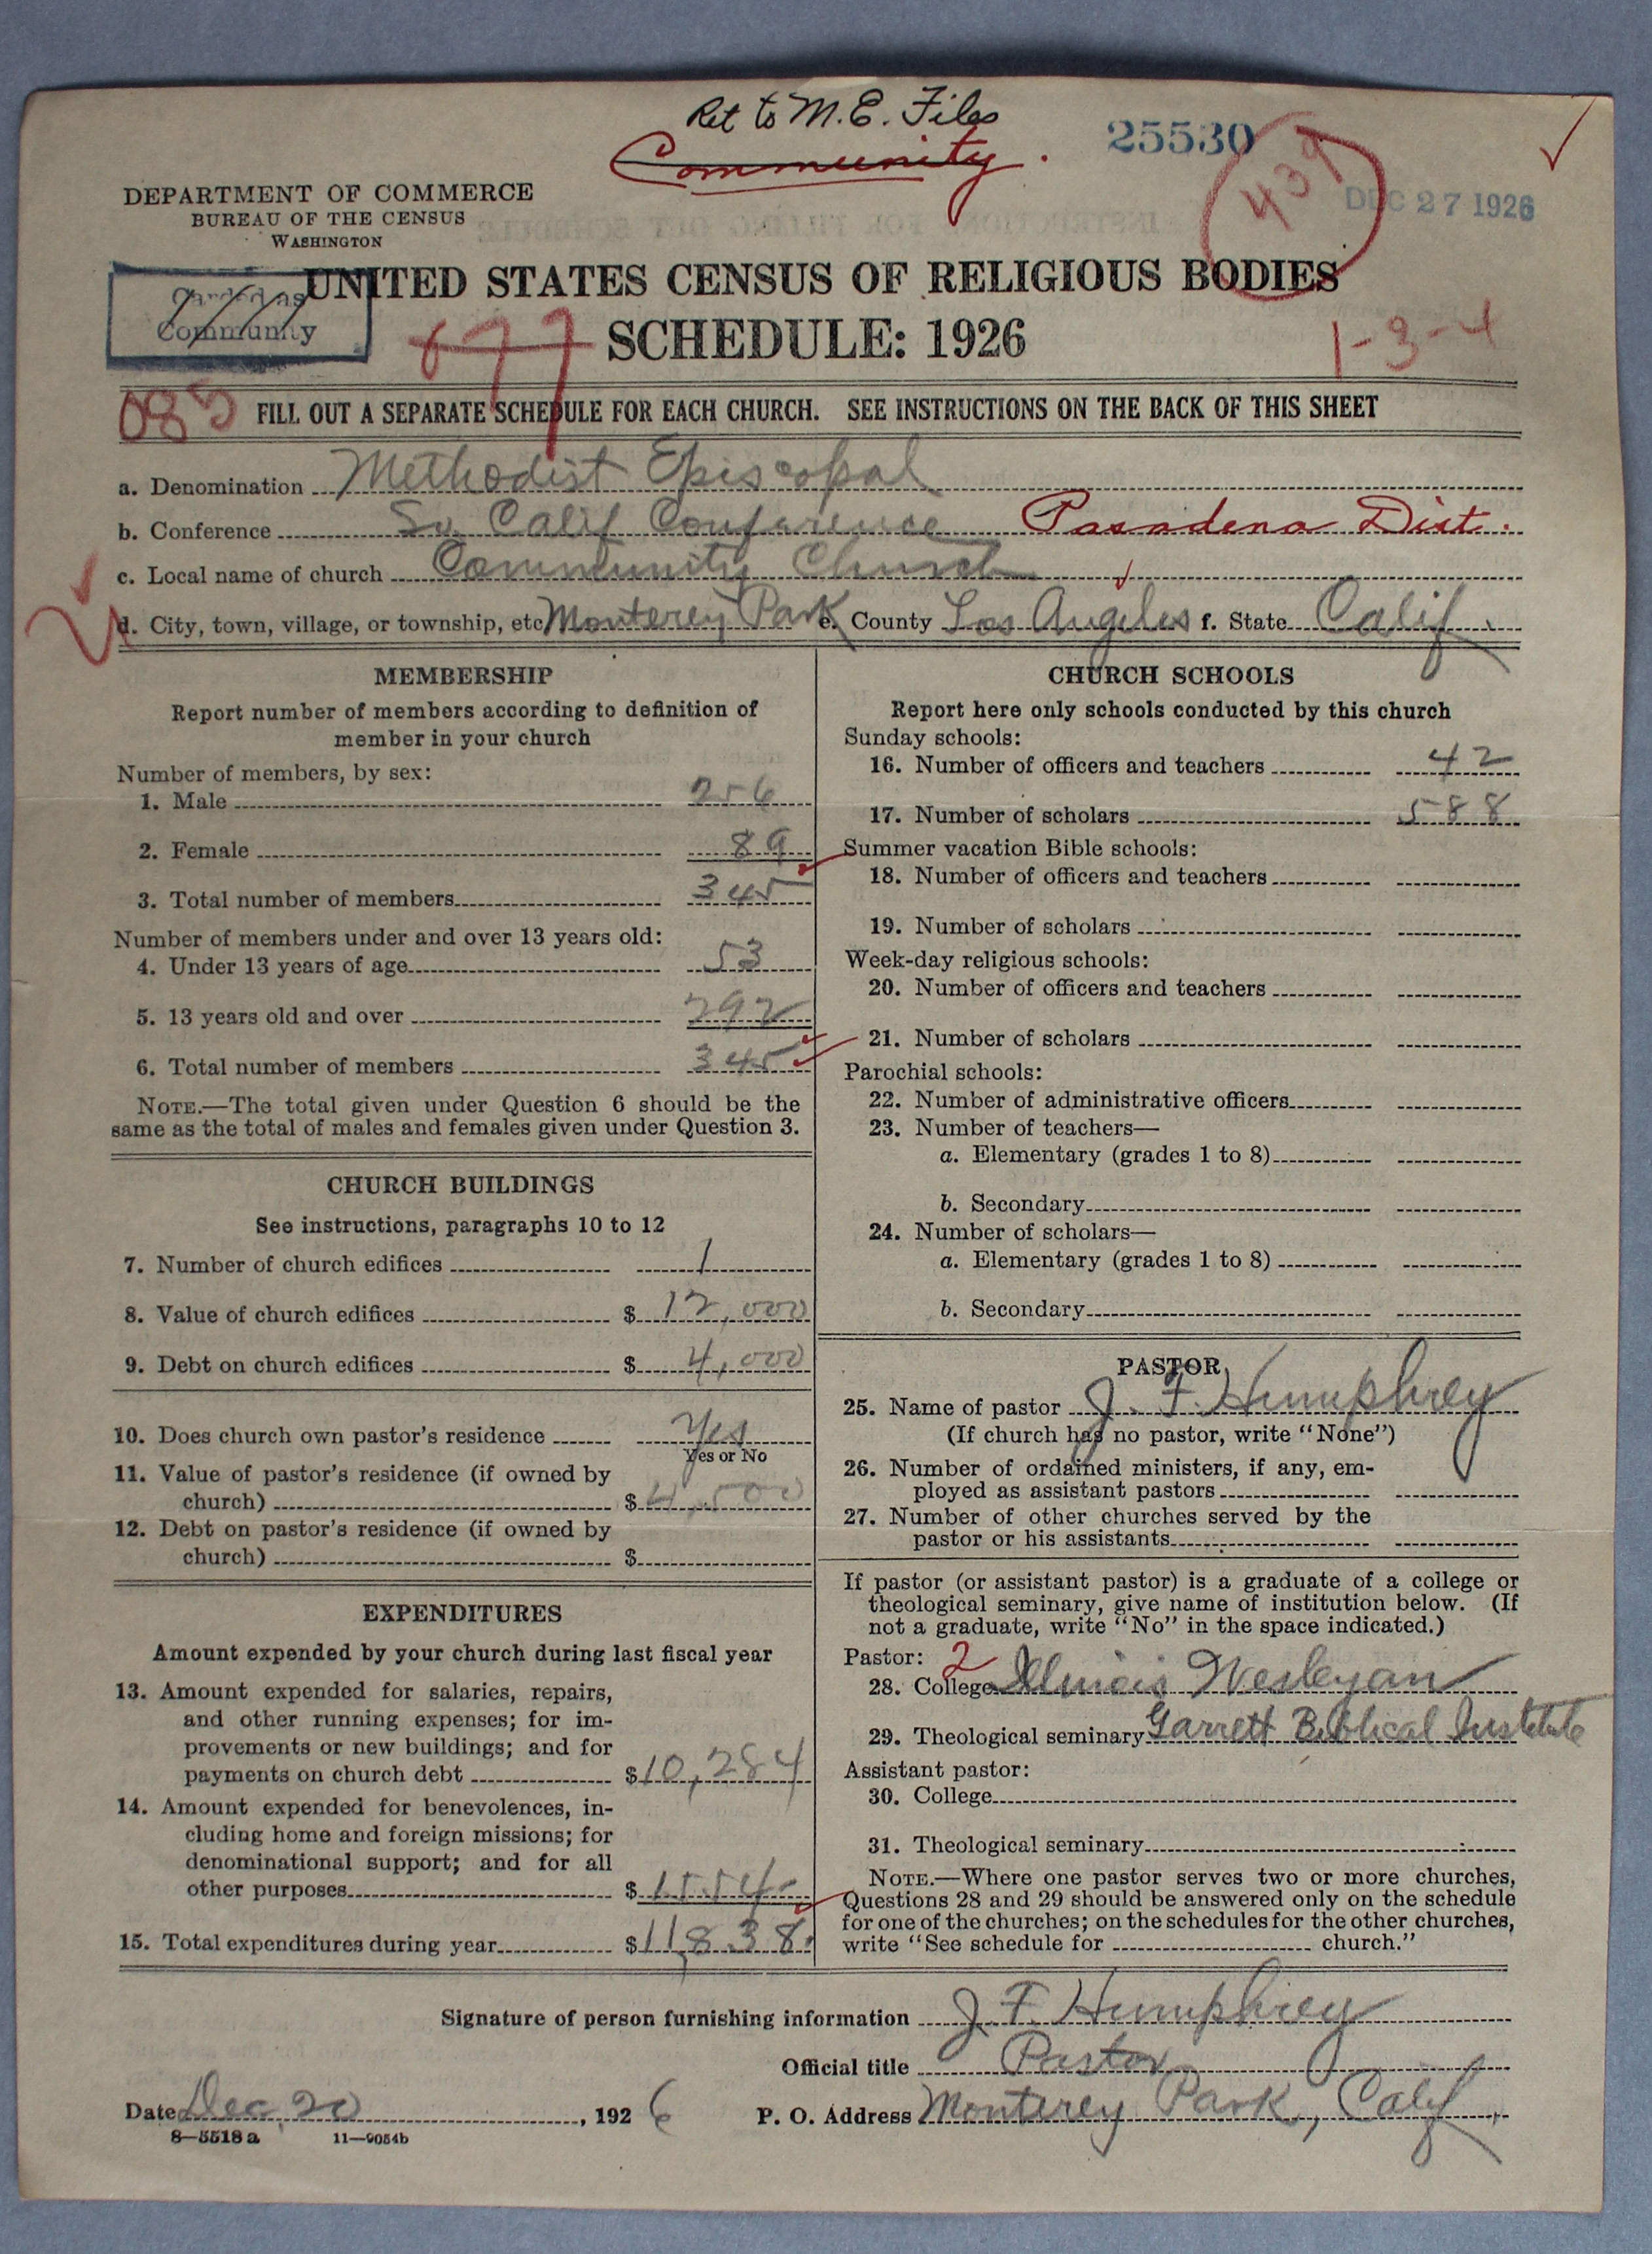 Ret to M.E. Files
Community.
25530
439
DEC 27 1926
DEPARTMENT OF COMMERCE
BUREAU OF THE CENSUS
WASHINGTON
Community
UNITED STATES CENSUS OF RELIGIOUS BODIES
SCHEDULE: 1926
677
1-3-4
083
FILL OUT A SEPARATE SCHEDULE FOR EACH CHURCH. SEE INSTRUCTIONS ON THE BACK OF THIS SHEET
a. Denomination Methodist Episcopal
b. Conference So. Calif Conference Pasadena Dist.
c. Local name of church Community Church
d. City, town, village, or township, etc. Monterey Park e. County Los Angeles f. State Calif.
MEMBERSHIP
Report number of members according to definition of
member in your church
Number of members, by sex:
1. Male 256
2. Female 89
3. Total number of members 345
Number of members under and over 13 years old:
4. Under 13 years of age 53
5. 13 years old and over 292
6. Total number of members 345
NOTE.—The total given under Question 6 should be the
same as the total of males and females given under Question 3.
CHURCH BUILDINGS
See instructions, paragraphs 10 to 12
7. Number of church edifices 1
8. Value of church edifices $ 12,000
9. Debt on church edifices $ 4,000
10. Does church own pastor's residence Yes
Yes or No
11. Value of pastor's residence (if owned by
church) $ 4,500
12. Debt on pastor's residence (if owned by
church) $
EXPENDITURES
Amount expended by your church during last fiscal year
13. Amount expended for salaries, repairs,
and other running expenses; for im-
provements or new buildings; and for
payments on church debt $ 10,284
14. Amount expended for benevolences, in-
cluding home and foreign missions; for
denominational support; and for all
other purposes $ 1554
15. Total expenditures during year $ 11,838.
CHURCH SCHOOLS
Report here only schools conducted by this church
Sunday schools:
16. Number of officers and teachers 42
17. Number of scholars 588
Summer vacation Bible schools:
18. Number of officers and teachers
19. Number of scholars
Week-day religious schools:
20. Number of officers and teachers
21. Number of scholars
Parochial schools:
22. Number of administrative officers
23. Number of teachers—
a. Elementary (grades 1 to 8)
b. Secondary
24. Number of scholars—
a. Elementary (grades 1 to 8)
b. Secondary
PASTOR
25. Name of pastor J. F. Humphrey
(If church has no pastor, write "None")
26. Number of ordained ministers, if any, em-
ployed as assistant pastors
27. Number of other churches served by the
pastor or his assistants
If pastor (or assistant pastor) is a graduate of a college or
theological seminary, give name of institution below. (If
not a graduate, write "No" in the space indicated.)
Pastor: 2
28. College Illinois Wesleyan
29. Theological seminary Garrett Biblical Institute
Assistant pastor:
30. College
31. Theological seminary
NOTE.—Where one pastor serves two or more churches,
Questions 28 and 29 should be answered only on the schedule
for one of the churches; on the schedules for the other churches,
write "See schedule for church."
Signature of person furnishing information J. F. Humphrey
Official title Pastor
Date Dec. 20, 1926 P. O. Address Monterey Park, Calif.
8—5518 a 11—9054b